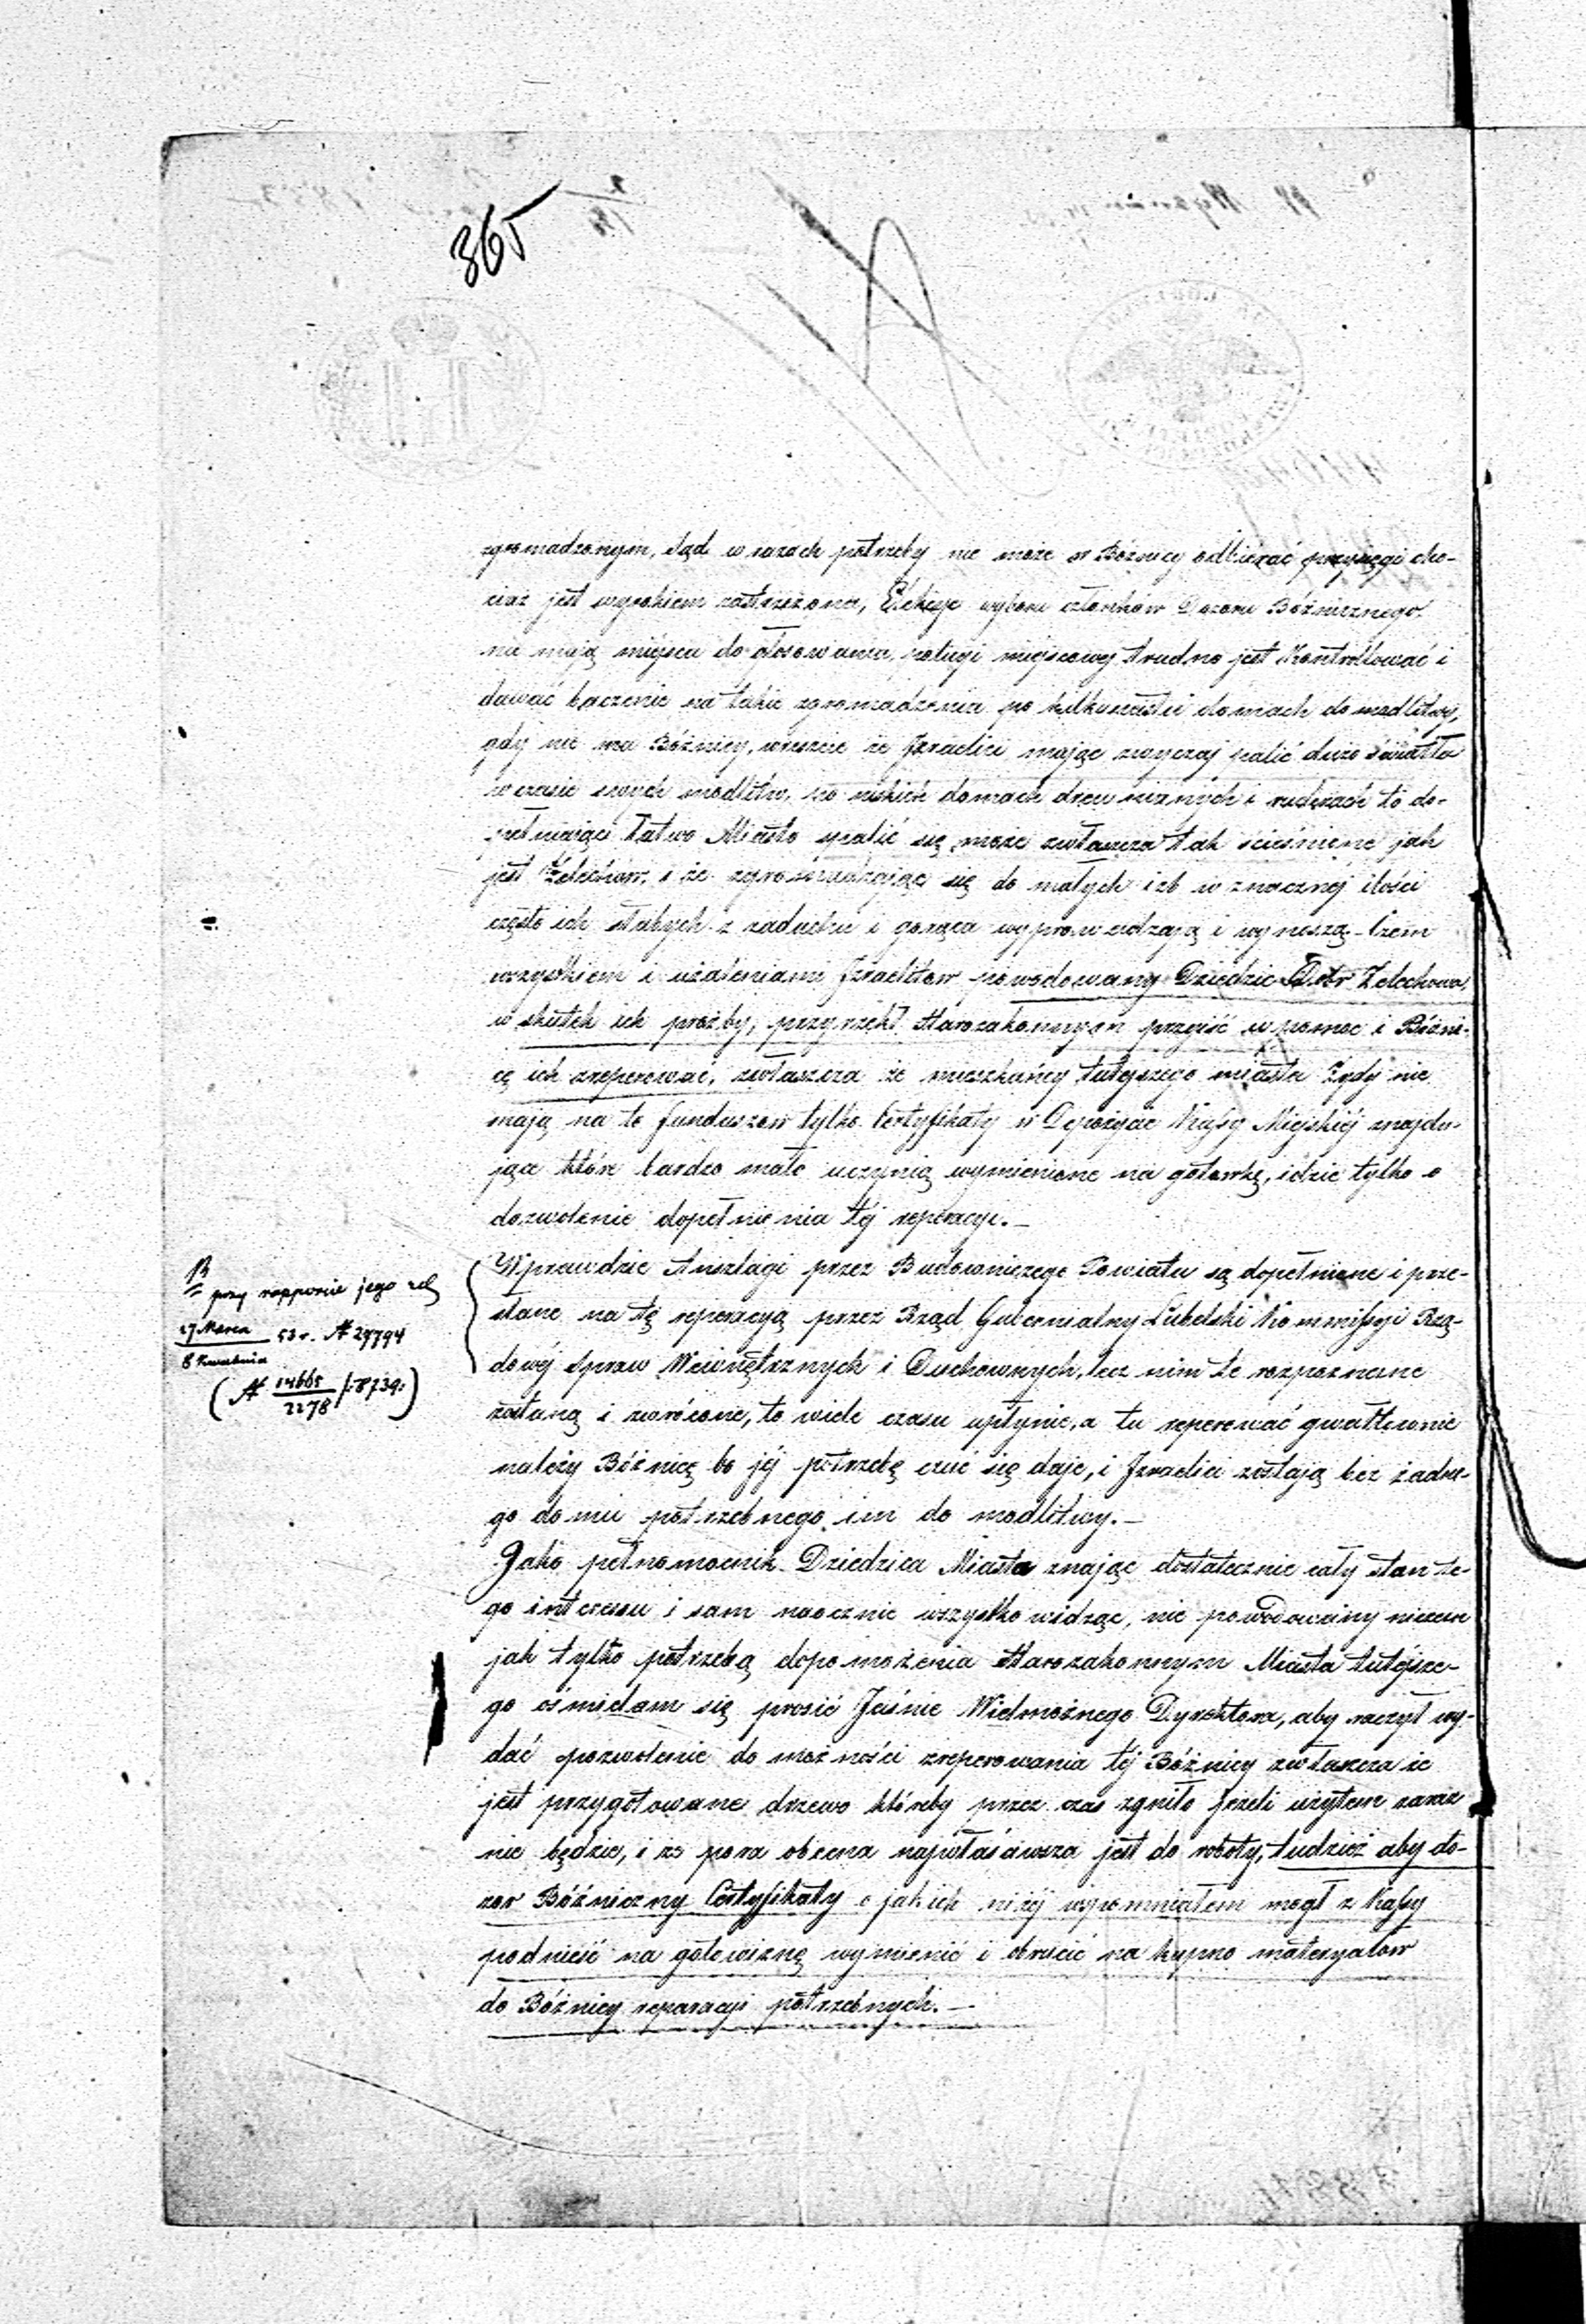 365
zgromadzonym, Sąd w razach potrzeby nie może w Bóżnicy odbierać przysięgi cho-
ciaż jest wyrokiem zastrzeżona, Elekcye wyboru członków Dozoru Bóżnicznego
nie mają miejsca do głosowania, policyi miejscowej trudno jest Kontrollować i
dawać baczenie na takie zgromadzenia po kilkunastu domach do modlitwy,
gdy nie ma Bóżnicy, wreszcie że Izraelici mając zwyczaj palić dużo światła
w czasie swych modlitw, po niskich domach drewnianych i ruderach to do-
pełniając łatwo Miasto spalić się może zwłaszcza tak ścieśnione jak
jest Żelechów, i że zgromadzając się do małych izb w znacznej ilości
często ich słabych z zaduchu i gorąca wyprowadzają i wynoszą. Czem
wszystkiem i użaleniami Izraelitów powodowany Dziedzic Dóbr Żelechowa,
w skutek ich prośby, przyrzekł Starozakonnym przyjść w pomoc i Bóżni-
cę ich zreperować, zwłaszcza że mieszkańcy tutejszego miasta Żydy nie
mają na to funduszów tylko Certyfikaty w Depozycie Kassy Miejskiej znajdu-
jące które bardzo mało uczynią wymienione na gotówkę, idzie tylko o
dozwolenie dopełnienia téj reperacyi.—
Wprawdzie Anszlagi przez Budowniczego Powiatu są dopełnione i prze-
słane na tę reperacyą przez Rząd Gubernialny Lubelski Kommissyi Rzą-
dowéj Spraw Wewnętrznych i Duchownych, lecz nim te rozpoznane
zostaną i zwrócone, to wiele czasu upłynie, a tu reperować gwałtownie
należy Bóżnicę bo jéj potrzebę czuć się daje, i Izraelici zostają bez żadne-
go domu potrzebnego im do modlitwy.—
Jako pełnomocnik Dziedzica Miasta znając dostatecznie cały stan te-
go interessu i sam naocznie wszystko widząc, nie powodowany niczem
jak tylko potrzebą dopomożenia Starozakonnym Miasta tutejsze-
go ośmielam się prosić Jaśnie Wielmożnego Dyrektora, aby raczył wy-
dać pozwolenie do możności zreperowania téj Bóżnicy zwłaszcza że
jest przygotowane drzewo któreby przez czas zgniło jeżeli użytem zaraz
nie będzie, i że pora obecna najwłaściwsza jest do roboty, tudzież aby do-
zór Bóżniczny Certyfikaty o jakich niżej wspomniałem mógł z Kassy
podnieść na gotowiznę wymienić i obrócić na kupno materyałów
do Bóżnicy reparacyi potrzebnych.—
przy rapporcie jego
27 Marca
8 Kwietnia 53 r. N 29794
(N 14665
2278 /:8739:)